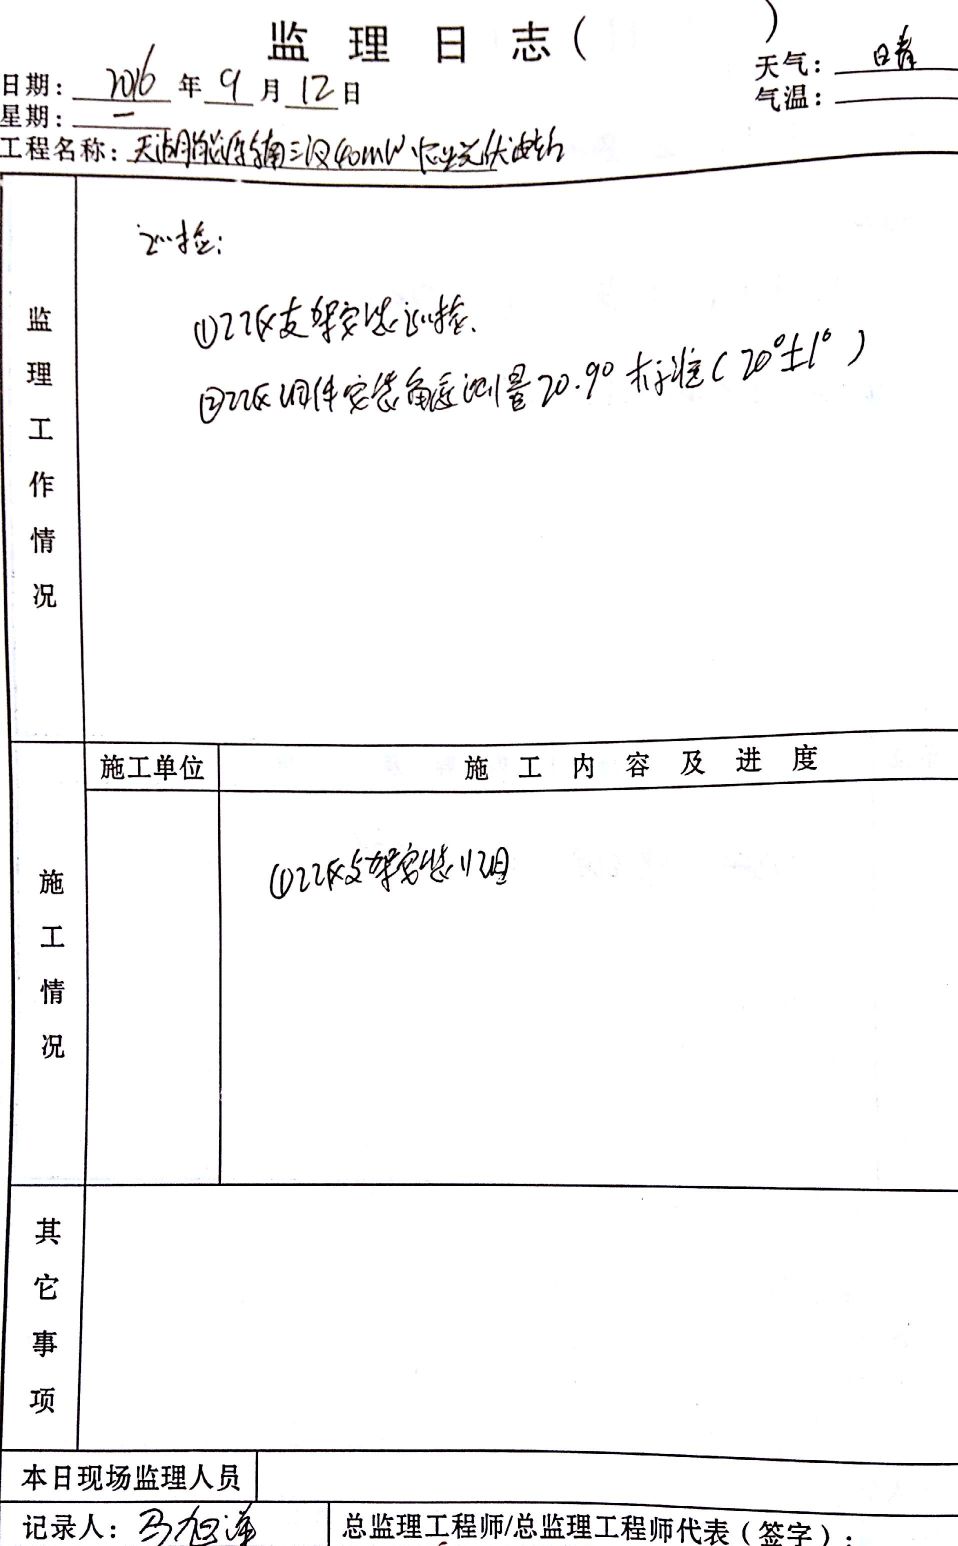 监理日志（ ）
日期：2016年9月12日
天气：晴
星期：一
气温：
工程名称：天湖 三 40MW 光伏
监理工作情况
巡检：
①22区支架安装巡检.
②22区组件安装角度测量20.9° 标准(20°±1°)
施工单位
施工内容及进度
施工情况
①22区支架安装112组
其它事项
本日现场监理人员
记录人：马旭泽
总监理工程师/总监理工程师代表（签字）：